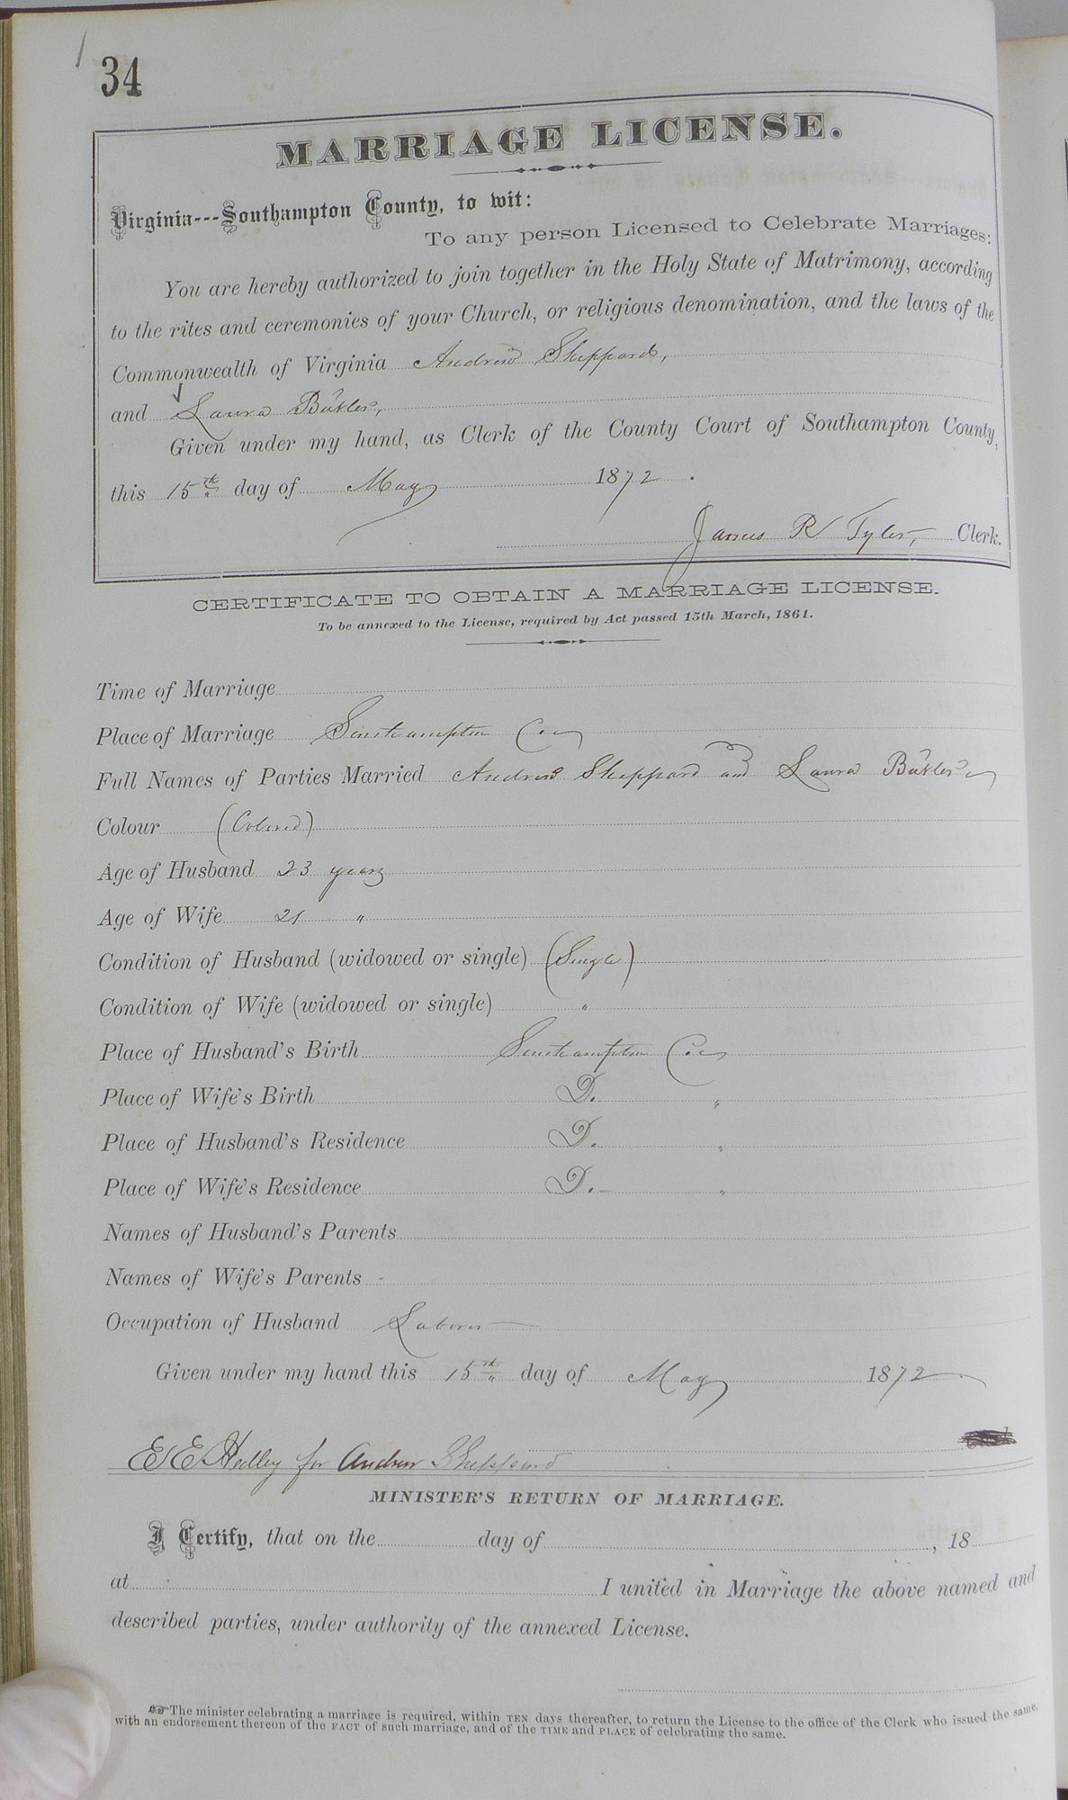 34
MARRIAGE LICENSE.
Virginia---Southampton County, to wit:
To any person Licensed to Celebrate Marriages:
You are hereby authorized to join together in the Holy State of Matrimony, according
to the rites and ceremonies of your Church, or religious denomination, and the laws of the
Commonwealth of Virginia Andrew Sheppard,
and Laura Butler,
Given under my hand, as Clerk of the County Court of Southampton County,
this 15th day of May 1872.
James R Tyler, Clerk.
CERTIFICATE TO OBTAIN A MARRIAGE LICENSE.
To be annexed to the License, required by Act passed 15th March, 1861.
Time of Marriage
Place of Marriage Southampton Co.
Full Names of Parties Married Andrew Sheppard and Laura Butler
Colour (Colored)
Age of Husband 23 years
Age of Wife 21 "
Condition of Husband (widowed or single) (Single)
Condition of Wife (widowed or single) "
Place of Husband's Birth Southampton Co.
Place of Wife's Birth D. "
Place of Husband's Residence D. "
Place of Wife's Residence D. "
Names of Husband's Parents
Names of Wife's Parents
Occupation of Husband Laborer
Given under my hand this 15th day of May 1872.
E E for Andrew Sheppard
MINISTER'S RETURN OF MARRIAGE.
I Certify, that on the day of , 18
at I united in Marriage the above named and
described parties, under authority of the annexed License.
☞The minister celebrating a marriage is required, within TEN days thereafter, to return the License to the office of the Clerk who issued the same,
with an endorsement thereon of the FACT of such marriage, and of the TIME and PLACE of celebrating the same.